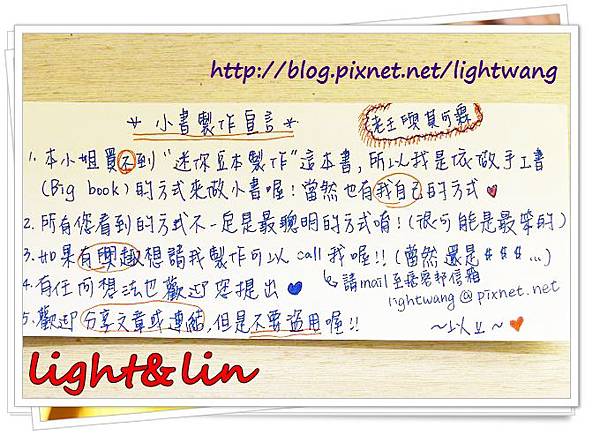 http://blog.pixnet.net/lightwang
* 小書製作宣言 *
老王與其可愛
1. 本小姐買不到"迷你豆本製作"這本書,所以我是依做手工書
(Big book)的方式來做小書喔!當然也有我自己的方式♥
2. 所有您看到的方式不一定是最聰明的方式唷!(很可能是最笨的)
3. 如果有興趣想請我製作可以 call 我喔!!(當然還是$$$...)
4. 有任何想法也歡迎您提出♥
請mail至痞客邦信箱
lightwang@pixnet.net
5. 歡迎分享文章或連結,但是不要盜用喔!!
~以上~♥
light&lin